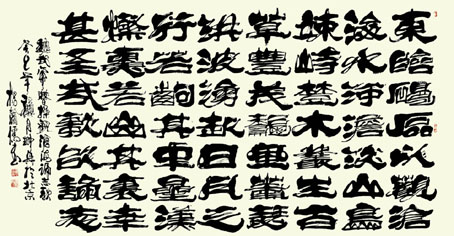 東臨碣石以觀滄
海水何澹澹山島
竦峙樹木叢生百
草豐茂秋風蕭瑟
洪波涌起日月之
行若出其中星漢
燦爛若出其裏幸
甚至哉歌以詠志
魏武帝曹操觀滄海
癸巳年 月 於北京